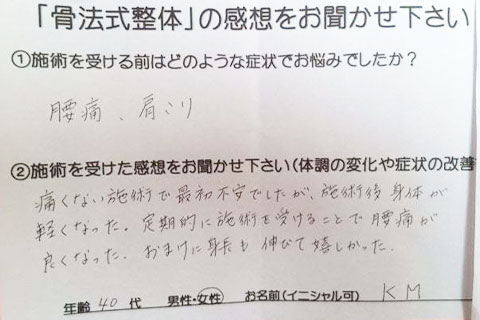 「骨法式整体」の感想をお聞かせ下さい
①施術を受ける前はどのような症状でお悩みでしたか？
腰痛、肩こり
②施術を受けた感想をお聞かせ下さい(体調の変化や症状の改善
痛くない施術で最初不安でしたが、施術後身体が
軽くなった。定期的に施術を受けることで腰痛が
良くなった。おまけに身長も伸びて嬉しかった。
年齢 40 代 男性・女性 お名前(イニシャル可) K M